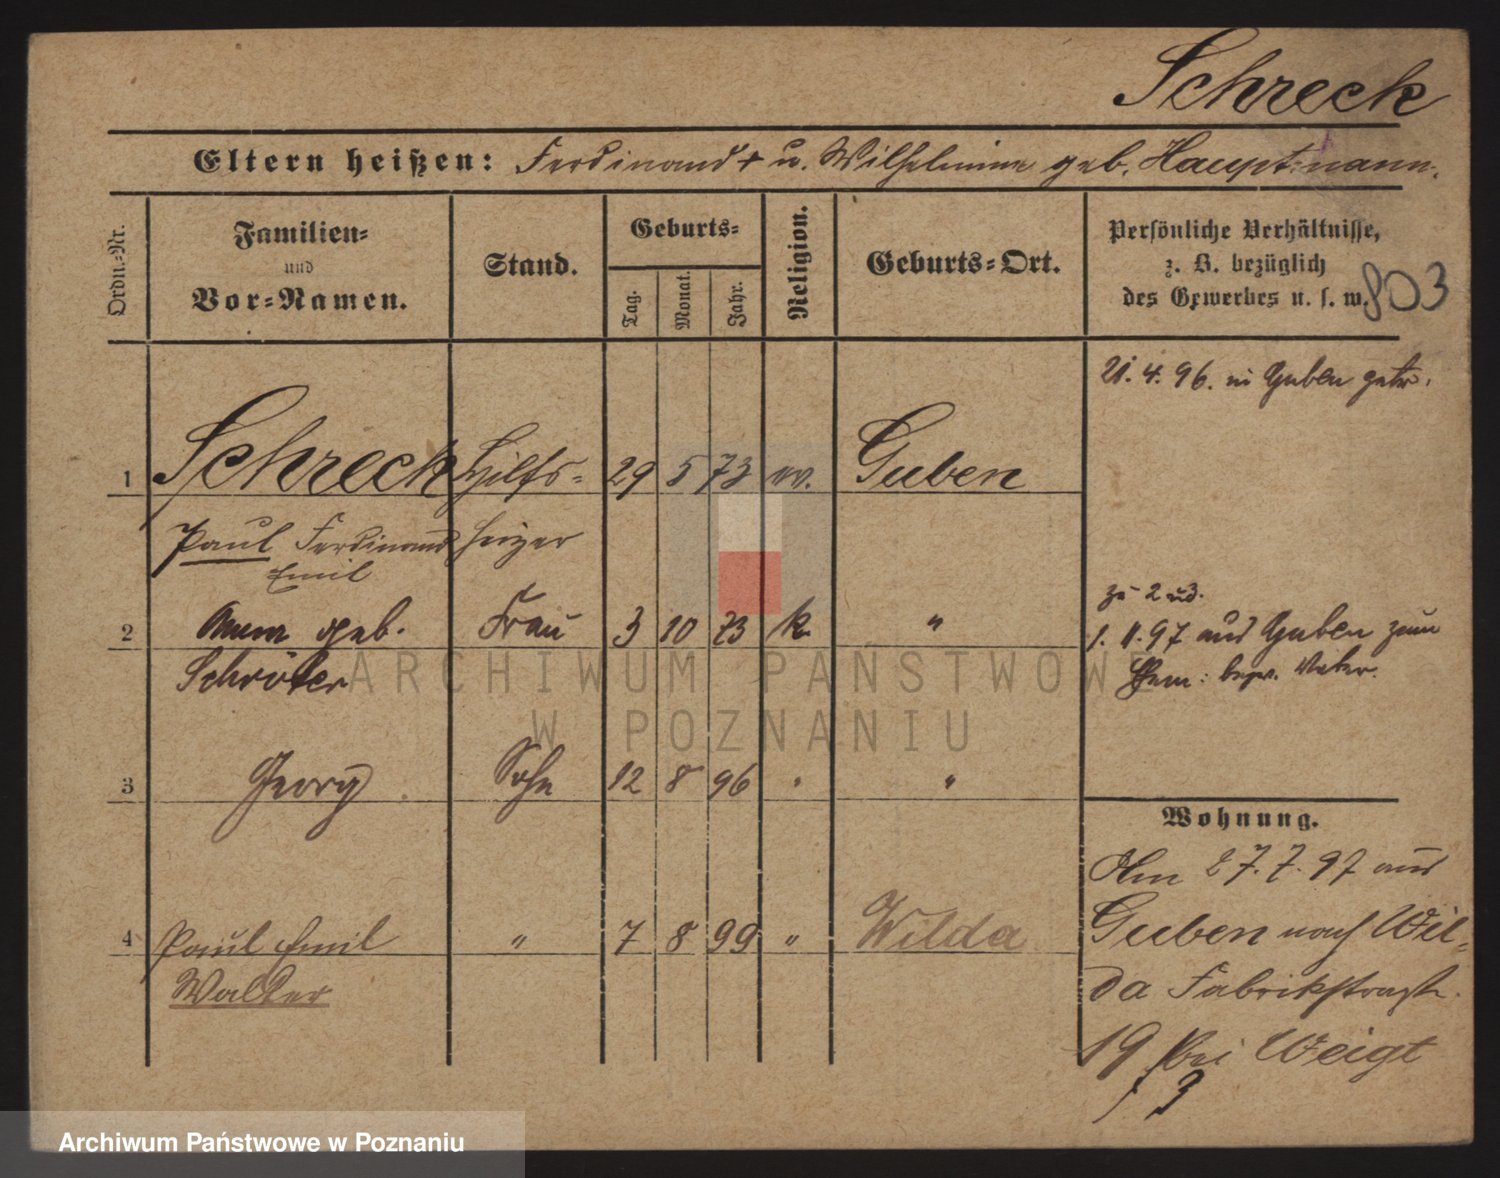 Schreck
Eltern heißen: Ferdinand + u. Wilhelmine geb. Hauptmann.
Ordn.-Nr.
Familien-
und
Vor-Namen.
Stand.
Geburts-
Tag.
Monat.
Jahr.
Religion.
Geburts-Ort.
Persönliche Verhältnisse,
z. B. bezüglich
des Gewerbes u. s. w.
803
21. 4. 96. in Guben getr.
1 Schreck Hilfs- 29 5 73 ev. Guben
Paul Ferdinand heizer
Emil
zu 2 u 3.
2 Anna geb. Frau 3 10 73 k. "
Schröter
1. 11. 97 aus Guben zum
Ehem: bezw. Vater.
3 Georg Sohn 12 8 96 " "
Wohnung.
4 Paul Emil " 7 8 99 " Wilda
Walter
Am 27. 7. 97 aus
Guben nach Wil-
da Fabrikstraße
19 bei Weigt
ARCHIWUM PAŃSTWOWE
W POZNANIU
Archiwum Państwowe w Poznaniu